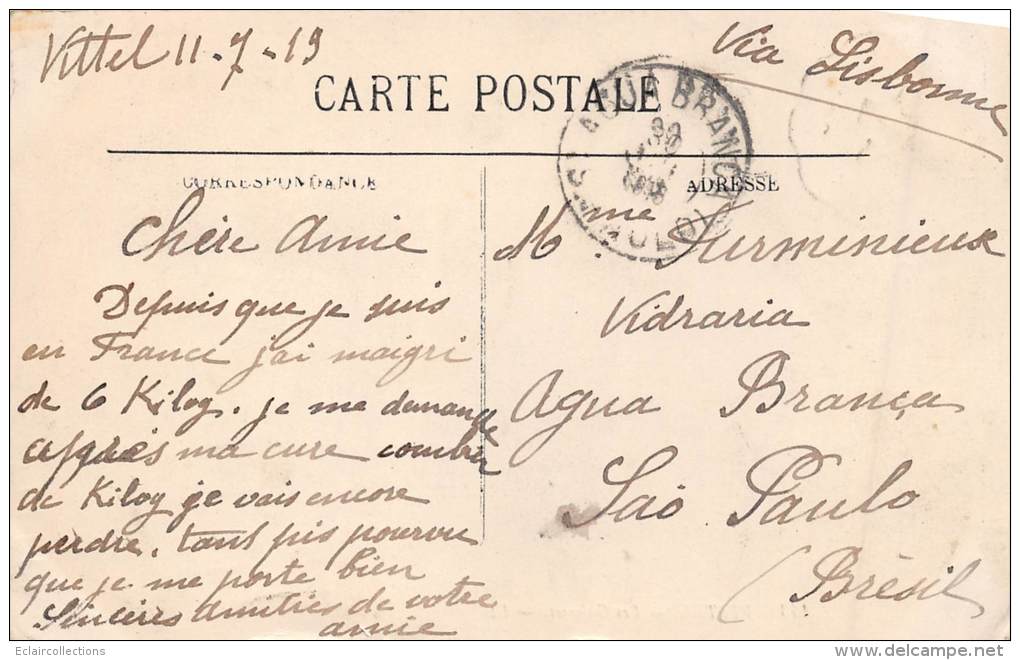 Vittel 11-7-13
Via Lisbonne
CARTE POSTALE
CORRESPONDANCE
ADRESSE
Chère Amie
Depuis que je suis
en France j'ai maigri
de 6 Kilog. je me demande
après ma cure combien
de Kilog je vais encore
perdre, tant pis pourvu
que je me porte bien
Sincères Amitiés de votre
amie
Mme Furminieux
Vidraria
Agua Brança
Saõ Paulo
(Brésil)
AGUA BRANCA
Eclaircollections
delcampe.net